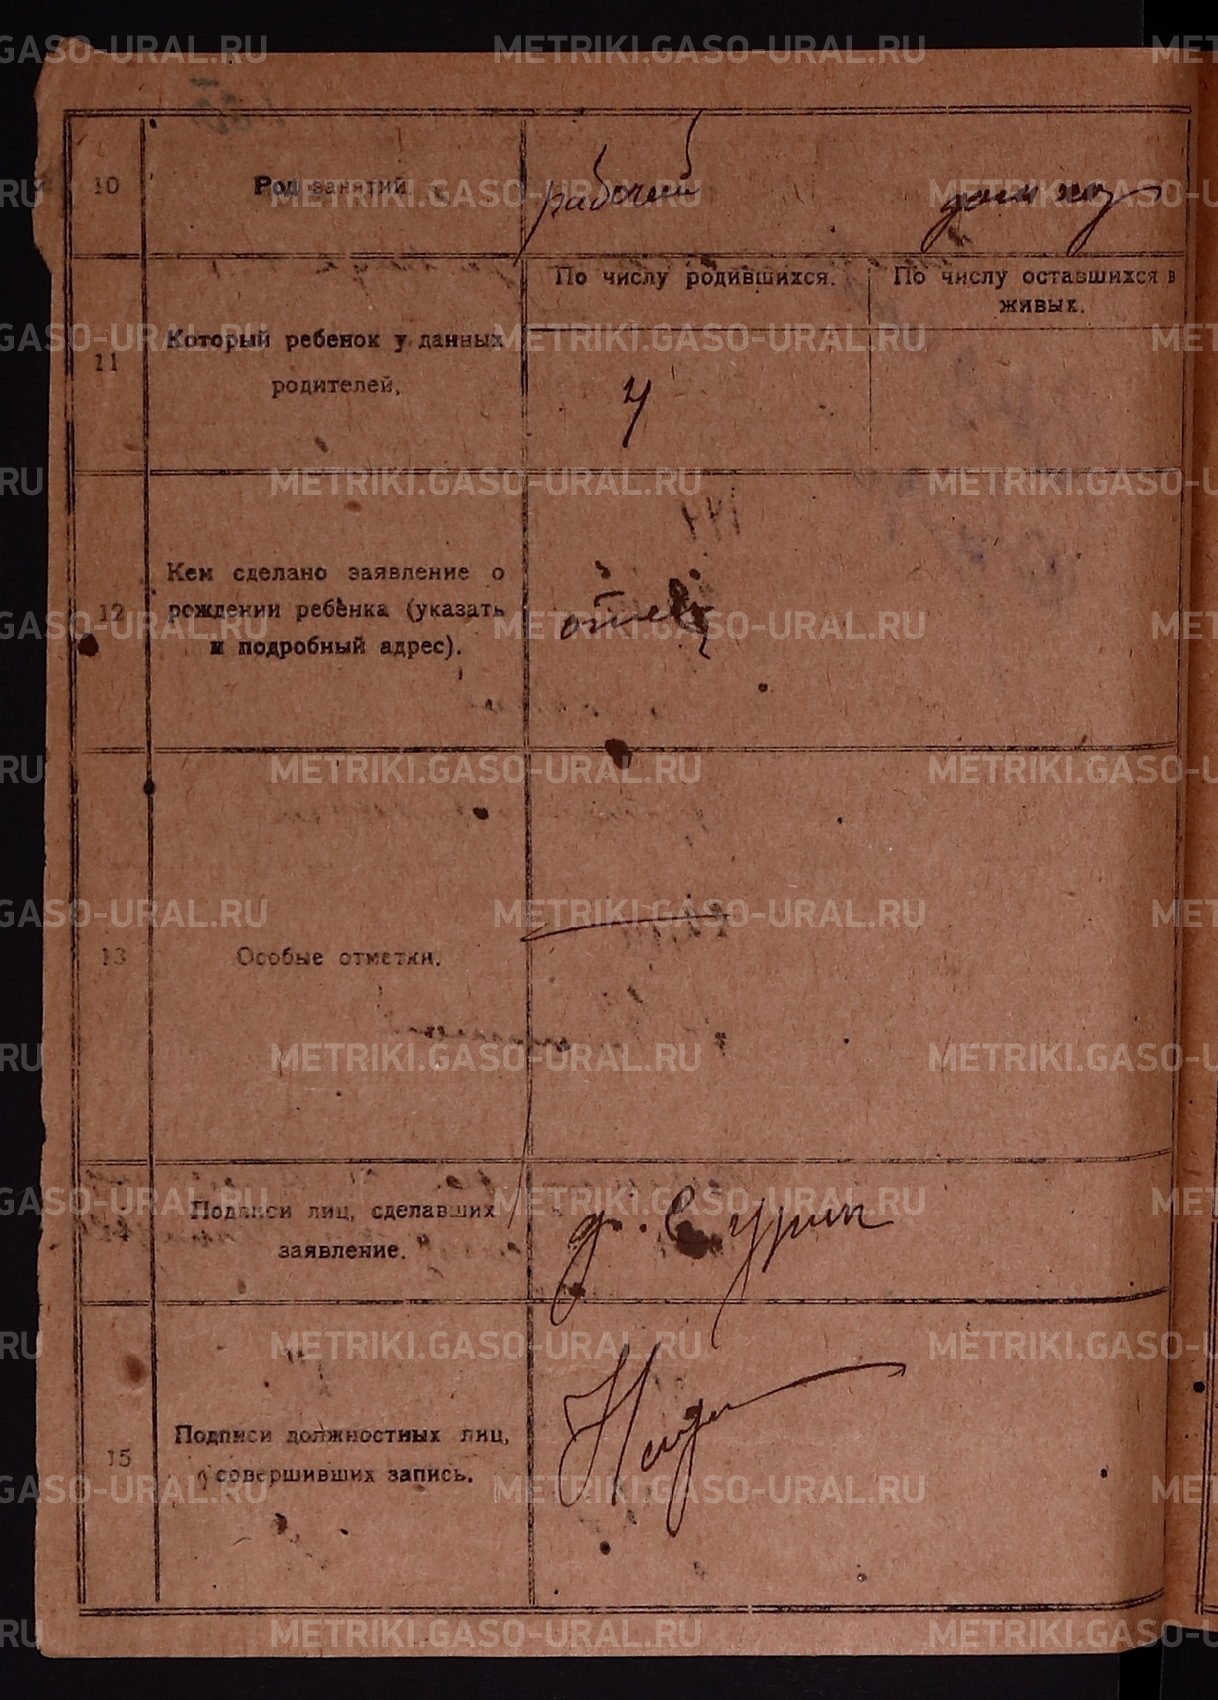 10
Род занятий.
рабочий
дом хоз
11
Который ребенок у данных
родителей.
По числу родившихся.
По числу оставшихся в
живых.
4
12
Кем сделано заявление о
рождении ребенка (указать
и подробный адрес).
отец
13
Особые отметки.
14
Подписи лиц, сделавших
заявление.
15
Подписи должностных лиц,
совершивших запись.
METRIKI.GASO-URAL.RU